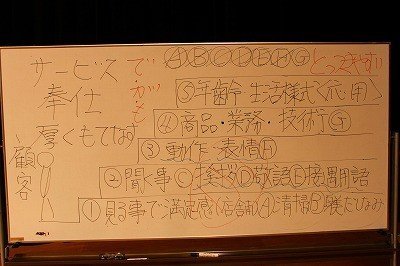 サービス
奉仕
厚くもてなす
で・が・も
顧客
ⒶⒷⒸⒹⒺⒻⒼ とっつきやすい
⑤年齢 生活様式く応用
④商品・業務・技術Ⓖ
③動作・表情Ⓕ
②聞く事Ⓒ挨拶Ⓓ敬語Ⓔ接遇用語
①見る事で満足感く店舗Ⓐ清掃Ⓑ身だしなみ